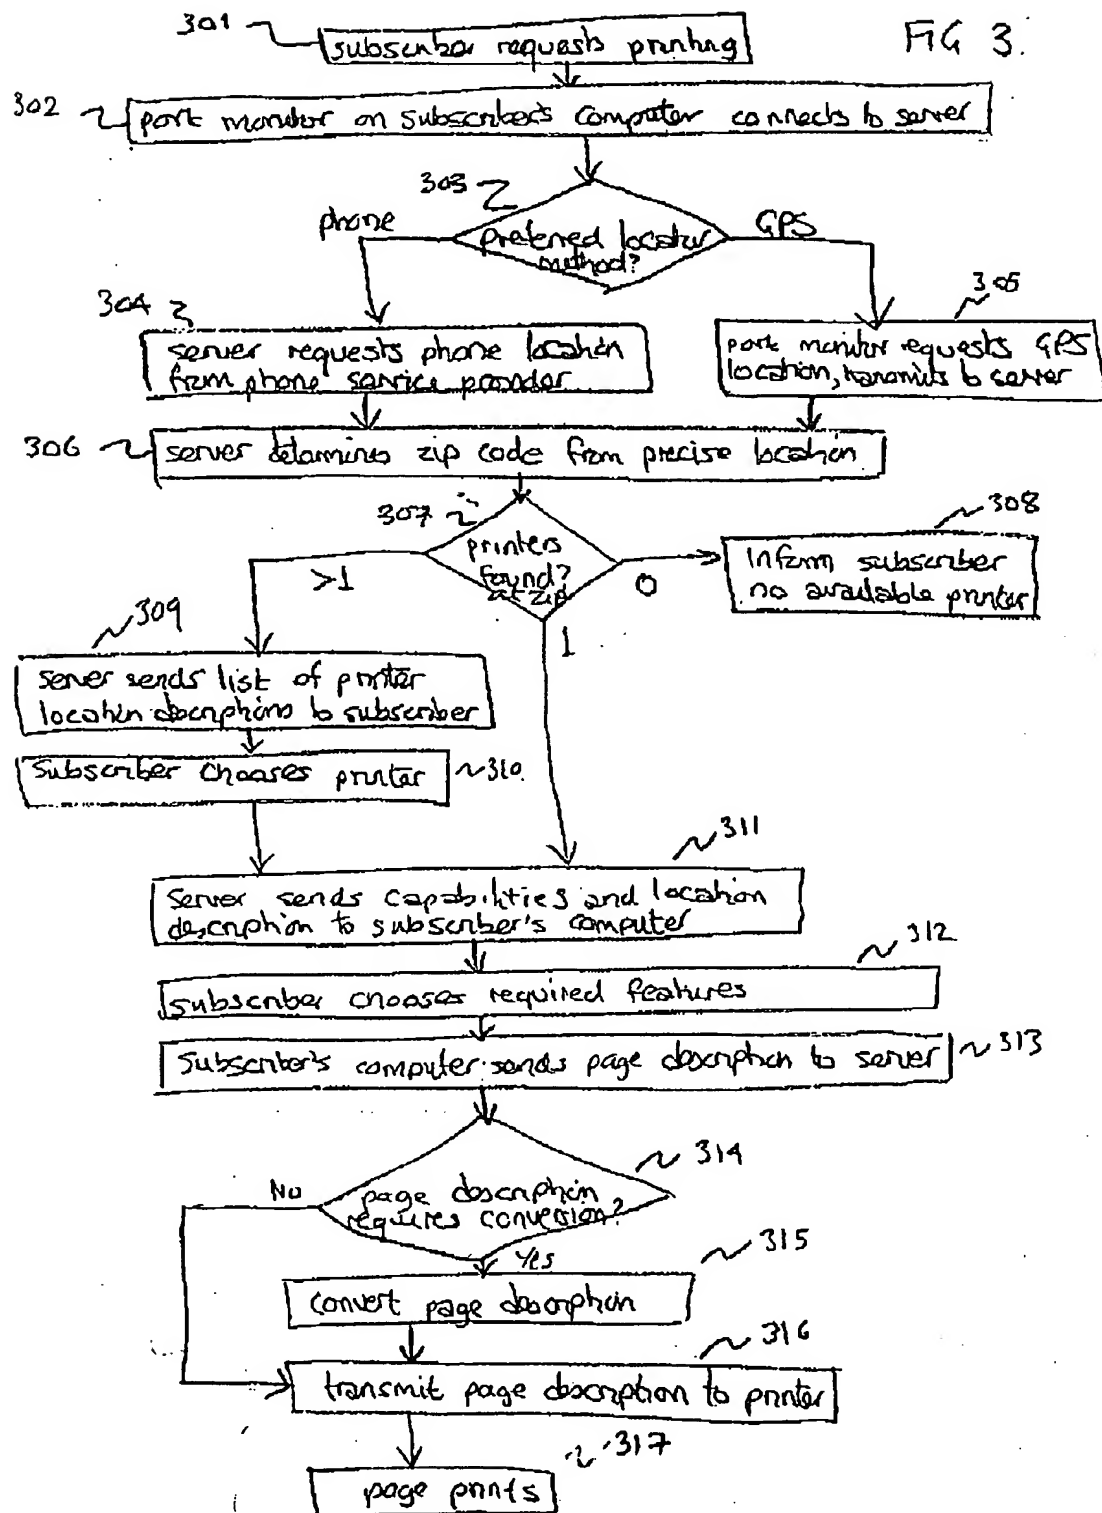 301
subscriber requests printing
FIG 3.
302
port monitor on subscriber's computer connects to server
303
phone
GPS
preferred locator
method?
304
305
server requests phone location
from phone service provider
port monitor requests GPS
location, transmits to server
306
server determines zip code from precise location
307
printers
found?
at zip
>1
0
1
308
Inform subscriber
no available printer
309
server sends list of printer
location descriptions to subscriber
subscriber chooses printer
310
311
server sends capabilities and location
description to subscriber's computer
312
subscriber chooses required features
subscriber's computer sends page description to server
313
314
No
page description
requires conversion?
Yes
315
convert page description
316
transmit page description to printer
317
page prints